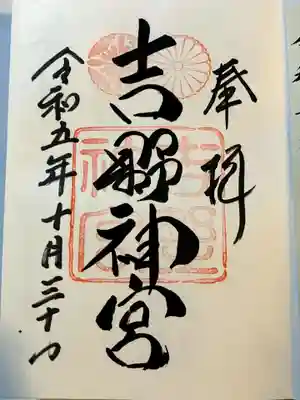 奉拝
吉野神宮
令和五年十月三十日